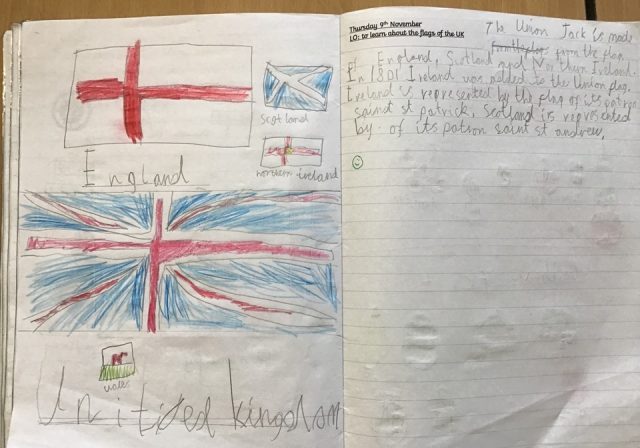 England
Scotland
northern ireland
wales
Unitised kingodom
Thursday 9th November
LO: to learn about the flags of the UK
The Union Jack is made
from the flag
of England, Scotland and Northern Ireland.
In 1801 Ireland was added to the Union flag.
Ireland is represented by the flag of its patron
saint st patrick, Scotland is represented
by. of its patron saint st andrew.